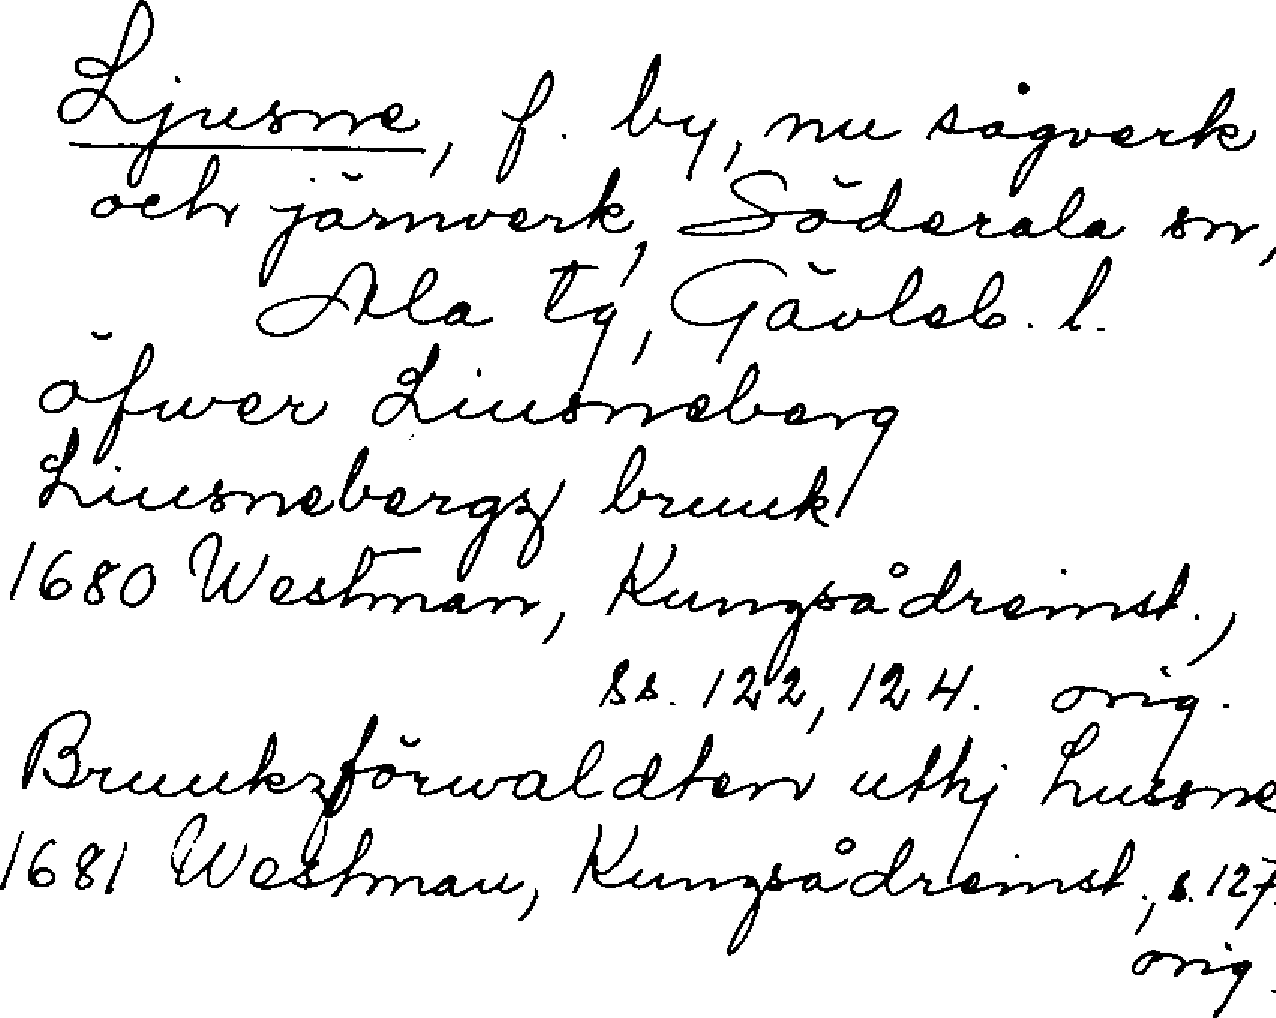 Ljusne, f. by, nu sågverk
och järnverk, Söderala sn,
Ala tg, Gävleb. l.
öfwer Liusneberg
Liusnebergz bruuk
1680 Westman, Kungsådreinst.,
ss. 122, 124. orig.
Bruukzförwaldten uthj Lusne
1681 Westman, Kungsådreinst., s. 127.
orig.